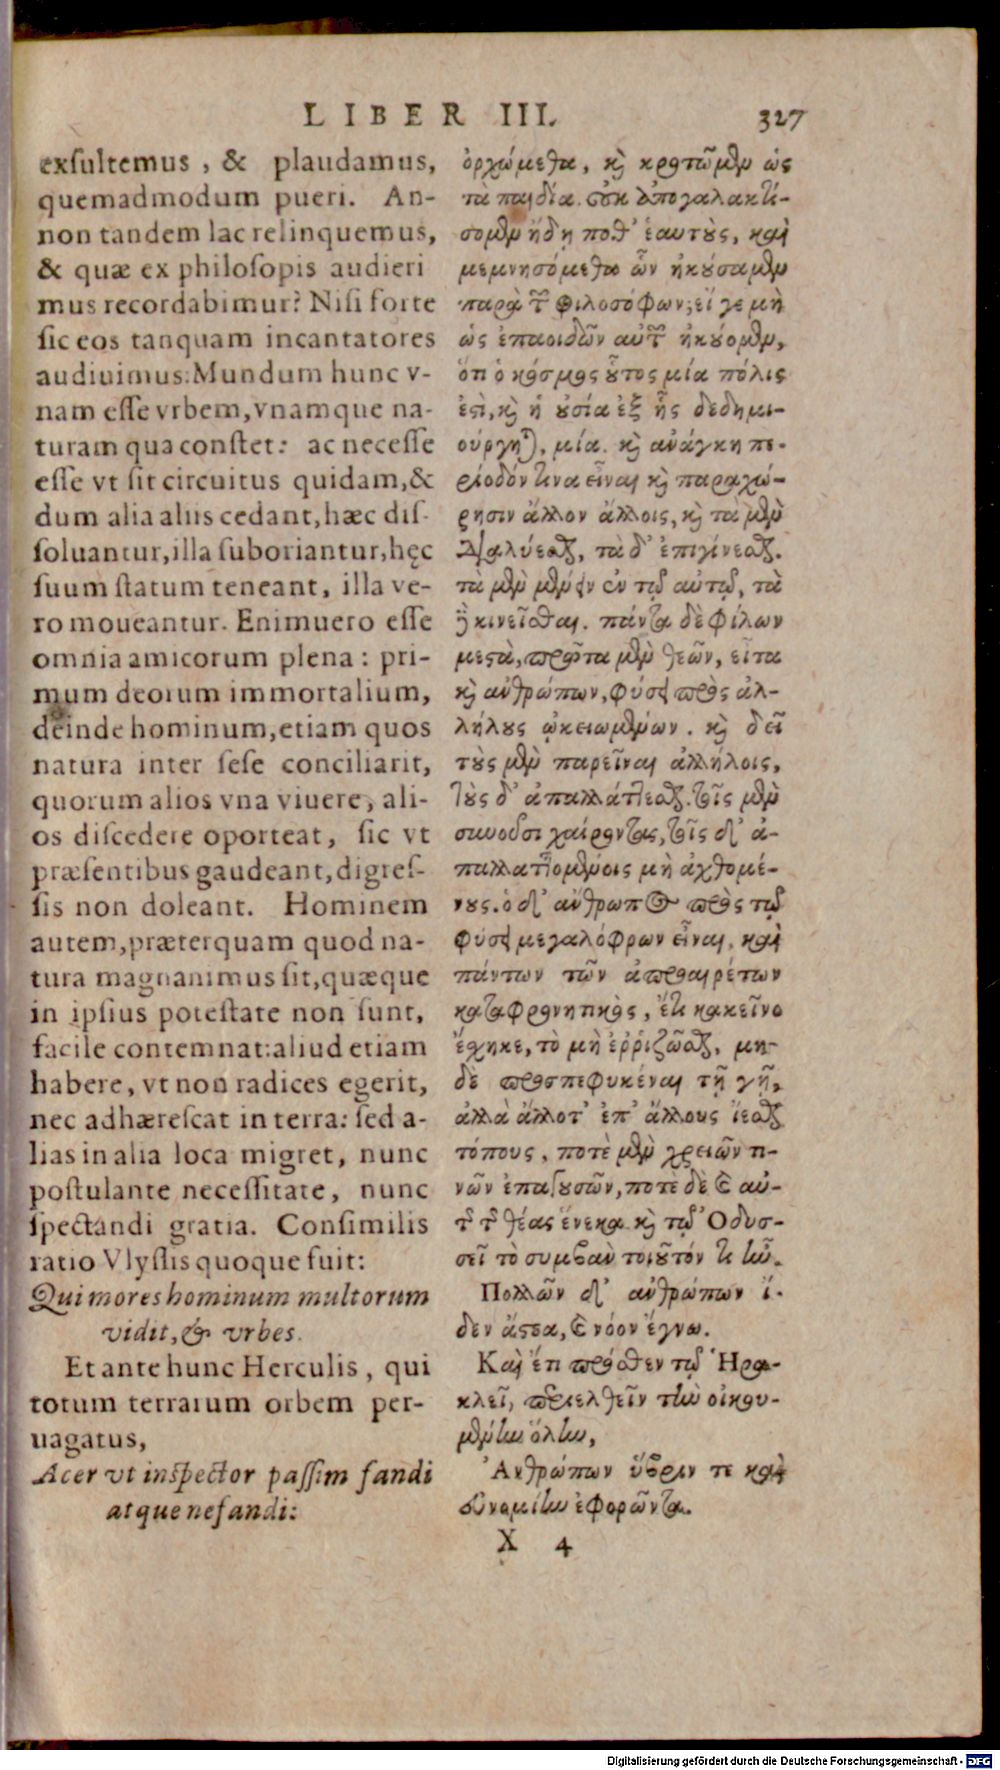 LIBER III. 327
exſultemus, & plaudamus,
quemadmodum pueri. An-
non tandem lac relinquemus,
& quæ ex philoſopis audieri
mus recordabimur? Niſi forte
ſic eos tanquam incantatores
audiuimus: Mundum hunc v-
nam eſſe vrbem, vnamque na-
turam qua conſtet: ac neceſſe
eſſe vt ſit circuitus quidam, &
dum alia aliis cedant, hæc diſ-
ſoluantur, illa ſuboriantur, hęc
ſuum ſtatum teneant, illa ve-
ro moueantur. Enimuero eſſe
omnia amicorum plena: pri-
mum deorum immortalium,
deinde hominum, etiam quos
natura inter ſeſe conciliarit,
quorum alios vna viuere, ali-
os diſcedere oporteat, ſic vt
præſentibus gaudeant, digreſ-
ſis non doleant. Hominem
autem, præterquam quod na-
tura magnanimus ſit, quæque
in ipſius poteſtate non ſunt,
facile contemnat: aliud etiam
habere, vt non radices egerit,
nec adhæreſcat in terra: ſed a-
lias in alia loca migret, nunc
poſtulante neceſſitate, nunc
ſpectandi gratia. Conſimilis
ratio Vlyſſis quoque fuit:
Qui mores hominum multorum
vidit, & vrbes.
Et ante hunc Herculis, qui
totum terrarum orbem per-
uagatus,
Acer vt inſpector paſſim fandi
atque nefandi:
ὀρχώμεθα, καὶ κροτῶμεν ὡς
τὰ παιδία. οὐκ ἀπογαλακτί-
σομεν ἤδη ποθ' ἑαυτοὺς, καὶ
μεμνησόμεθα ὧν ἠκούσαμεν
παρὰ τῶν φιλοσόφων; εἴ γε μὴ
ὡς ἐπαοιδῶν αὐτῶν ἠκούομεν,
ὅτι ὁ κόσμος οὗτος μία πόλις
ἐστὶ, καὶ ἡ οὐσία ἐξ ἧς δεδημι-
ούργηται, μία. καὶ ἀνάγκη πε-
ρίοδόν τινα εἶναι καὶ παραχώ-
ρησιν ἄλλον ἄλλοις, καὶ τὰ μὲν
διαλύεσθαι, τὰ δ' ἐπιγίνεσθαι.
τὰ μὲν μένειν ἐν τῷ αὐτῷ, τὰ
δὲ κινεῖσθαι. πάντα δὲ φίλων
μεστὰ, πρῶτα μὲν θεῶν, εἶτα
καὶ ἀνθρώπων, φύσει πρὸς ἀλ-
λήλους ᾠκειωμένων. καὶ δεῖ
τοὺς μὲν παρεῖναι ἀλλήλοις,
τοὺς δ' ἀπαλλάττεσθαι. τοῖς μὲν
συνοῦσι χαίροντας, τοῖς δ' ἀ-
παλλαττομένοις μὴ ἀχθομέ-
νους. ὁ δ' ἄνθρωπος πρὸς τῷ
φύσει μεγαλόφρων εἶναι, καὶ
πάντων τῶν ἀπροαιρέτων
καταφρονητικὸς, ἔτι κακεῖνο
ἔσχηκε, τὸ μὴ ἐῤῥιζῶσθαι, μη-
δὲ προσπεφυκέναι τῇ γῇ,
ἀλλὰ ἄλλοτ' ἐπ' ἄλλους ἵεσθαι
τόπους, ποτὲ μὲν χρειῶν τι-
νῶν ἐπαγουσῶν, ποτὲ δὲ καὶ αὐ-
τῆς τῆς θέας ἕνεκα. καὶ τῷ Ὀδυσ-
σεῖ τὸ συμβὰν τοιοῦτόν τι ἦν.
Πολλῶν δ' ἀνθρώπων ἴ-
δεν ἄστεα, καὶ νόον ἔγνω.
Καὶ ἔτι πρόσθεν τῷ Ἡρα-
κλεῖ, περιελθεῖν τὴν οἰκου-
μένην ὅλην,
Ἀνθρώπων ὕβριν τε καὶ
εὐνομίην ἐφορῶντα.
X 4
Digitalisierung gefördert durch die Deutsche Forschungsgemeinschaft - DFG